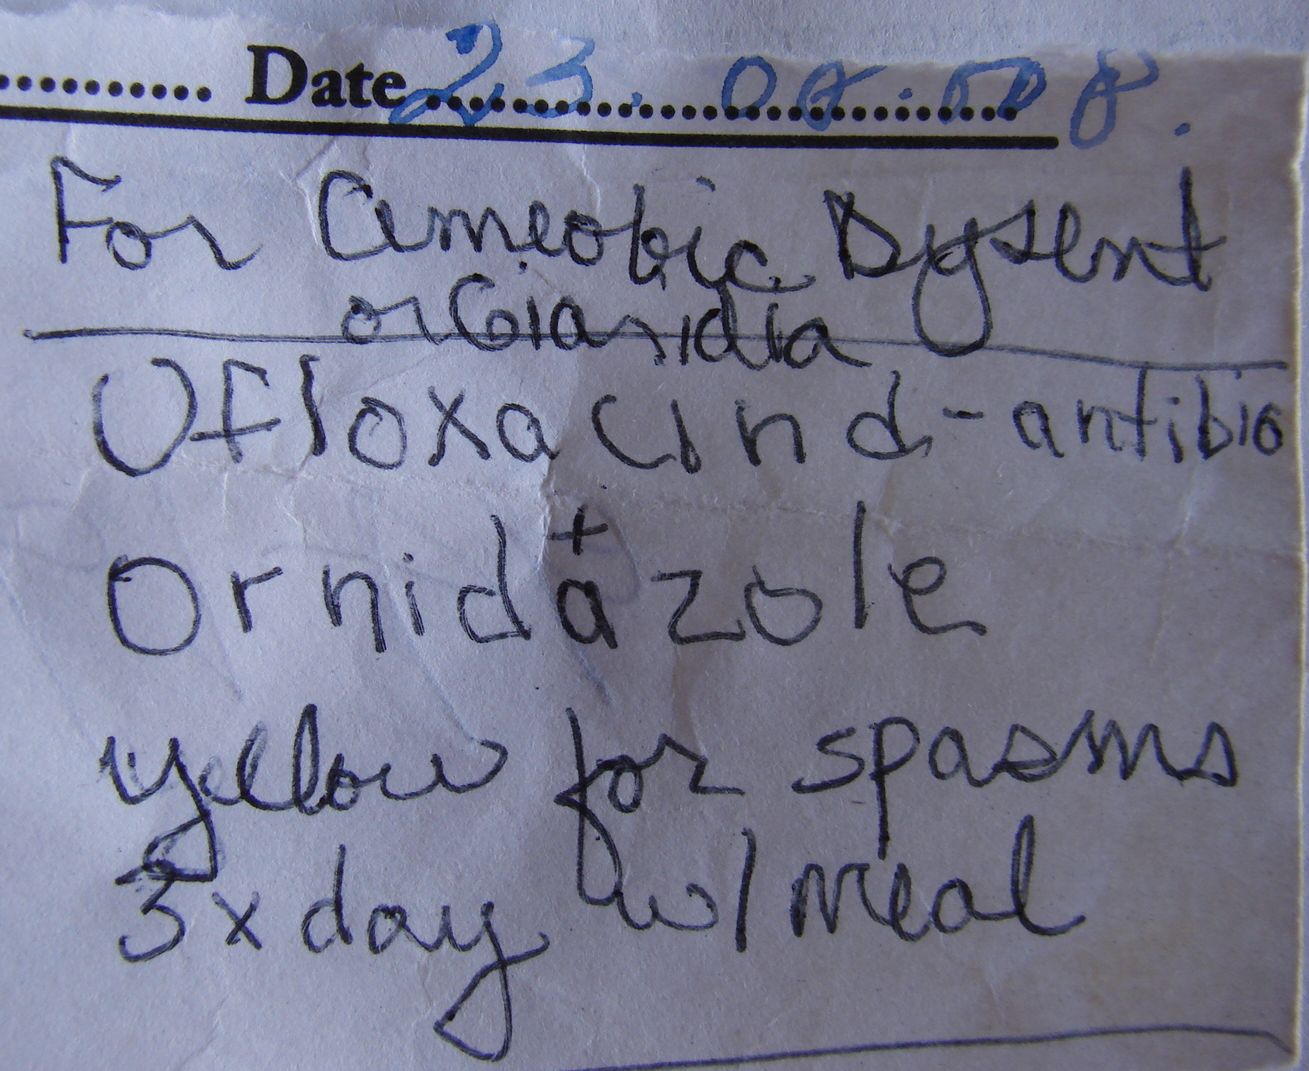 Date 23.08.08.
For Ameobic Dysent
or Giardia
Ofloxacind - antibio
+
Ornidazole
yellow for spasms
3x day w/ meal